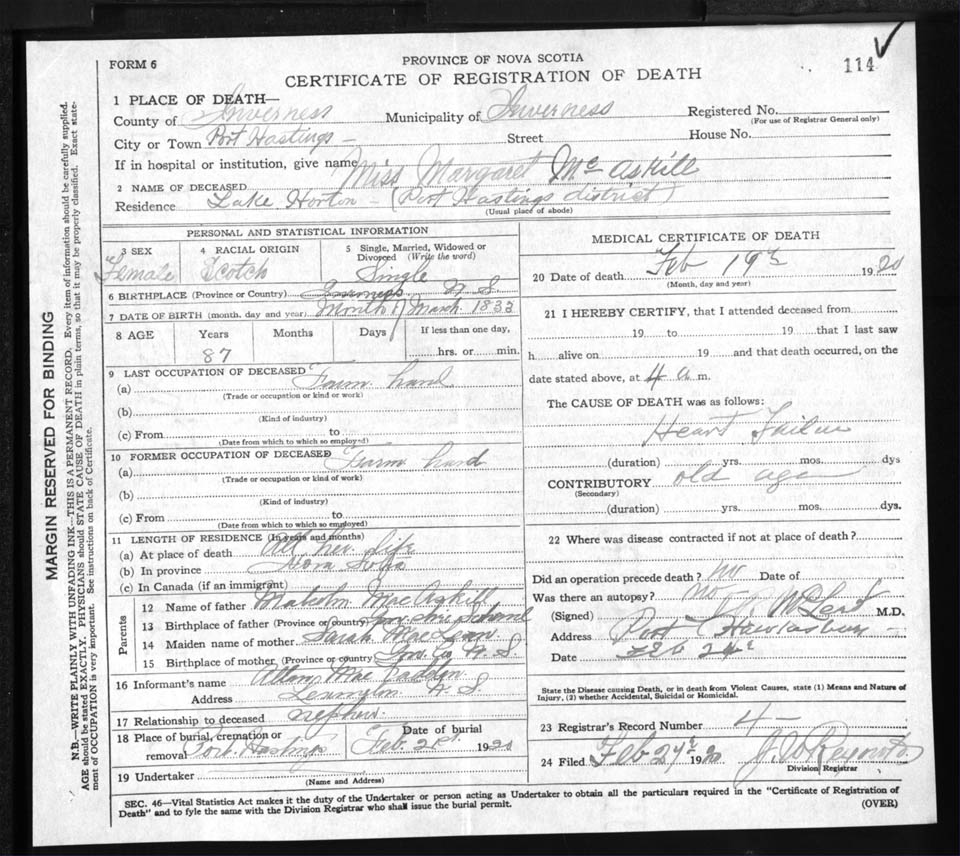 FORM 6
PROVINCE OF NOVA SCOTIA
CERTIFICATE OF REGISTRATION OF DEATH
114
1 PLACE OF DEATH—
County of Inverness Municipality of Inverness Registered No.
(For use of Registrar General only)
City or Town Port Hastings — Street House No.
If in hospital or institution, give name
2 NAME OF DECEASED Miss Margaret McAskill
Residence Lake Horton — (Port Hastings district)
(Usual place of abode)
PERSONAL AND STATISTICAL INFORMATION
3 SEX Female
4 RACIAL ORIGIN Scotch
5 Single, Married, Widowed or Divorced (Write the word) Single
6 BIRTHPLACE (Province or Country) Inverness N. S.
7 DATE OF BIRTH (month, day and year) Month of March 1833
8 AGE Years Months Days If less than one day,
87 hrs. or min.
9 LAST OCCUPATION OF DECEASED
(a) Farm hand
(Trade or occupation or kind or work)
(b)
(Kind of industry)
(c) From to
(Date from which to which so employed)
10 FORMER OCCUPATION OF DECEASED
(a) Farm hand
(Trade or occupation or kind of work)
(b)
(Kind of industry)
(c) From to
(Date from which to which so employed)
11 LENGTH OF RESIDENCE (In years and months)
(a) At place of death All her life
(b) In province Nova Scotia
(c) In Canada (if an immigrant)
Parents
12 Name of father Malcolm MacAskill
13 Birthplace of father (Province or country)
14 Maiden name of mother Sarah
15 Birthplace of mother (Province or country) Inv. Co. N. S.
16 Informant's name Allan
Address N. S.
17 Relationship to deceased nephew
18 Place of burial, cremation or removal Port Hastings
Date of burial Feb. 21st 1920
19 Undertaker
(Name and Address)
MEDICAL CERTIFICATE OF DEATH
20 Date of death Feb 19th 1920
(Month, day and year)
21 I HEREBY CERTIFY, that I attended deceased from
19 to 19 that I last saw
h alive on 19 and that death occurred, on the
date stated above, at 4 a m.
The CAUSE OF DEATH was as follows:
Heart Failure
(duration) yrs. mos. dys
CONTRIBUTORY old age
(Secondary)
(duration) yrs. mos. dys.
22 Where was disease contracted if not at place of death?
Did an operation precede death? No Date of
Was there an autopsy? No
(Signed) M.D.
Address Port Hawkesbury —
Date Feb 24th
State the Disease causing Death, or in death from Violent Causes, state (1) Means and Nature of
Injury, (2) whether Accidental, Suicidal or Homicidal.
23 Registrar's Record Number 4 —
24 Filed Feb 24th 1920
Division Registrar
SEC. 46—Vital Statistics Act makes it the duty of the Undertaker or person acting as Undertaker to obtain all the particulars required in the "Certificate of Registration of
Death" and to fyle the same with the Division Registrar who shall issue the burial permit.
(OVER)
MARGIN RESERVED FOR BINDING
N.B.—WRITE PLAINLY WITH UNFADING INK—THIS IS A PERMANENT RECORD. Every item of information should be carefully supplied.
AGE should be stated EXACTLY. PHYSICIANS should STATE CAUSE OF DEATH in plain terms, so that it may be properly classified. Exact state-
ment of OCCUPATION is very important. See instructions on back of Certificate.